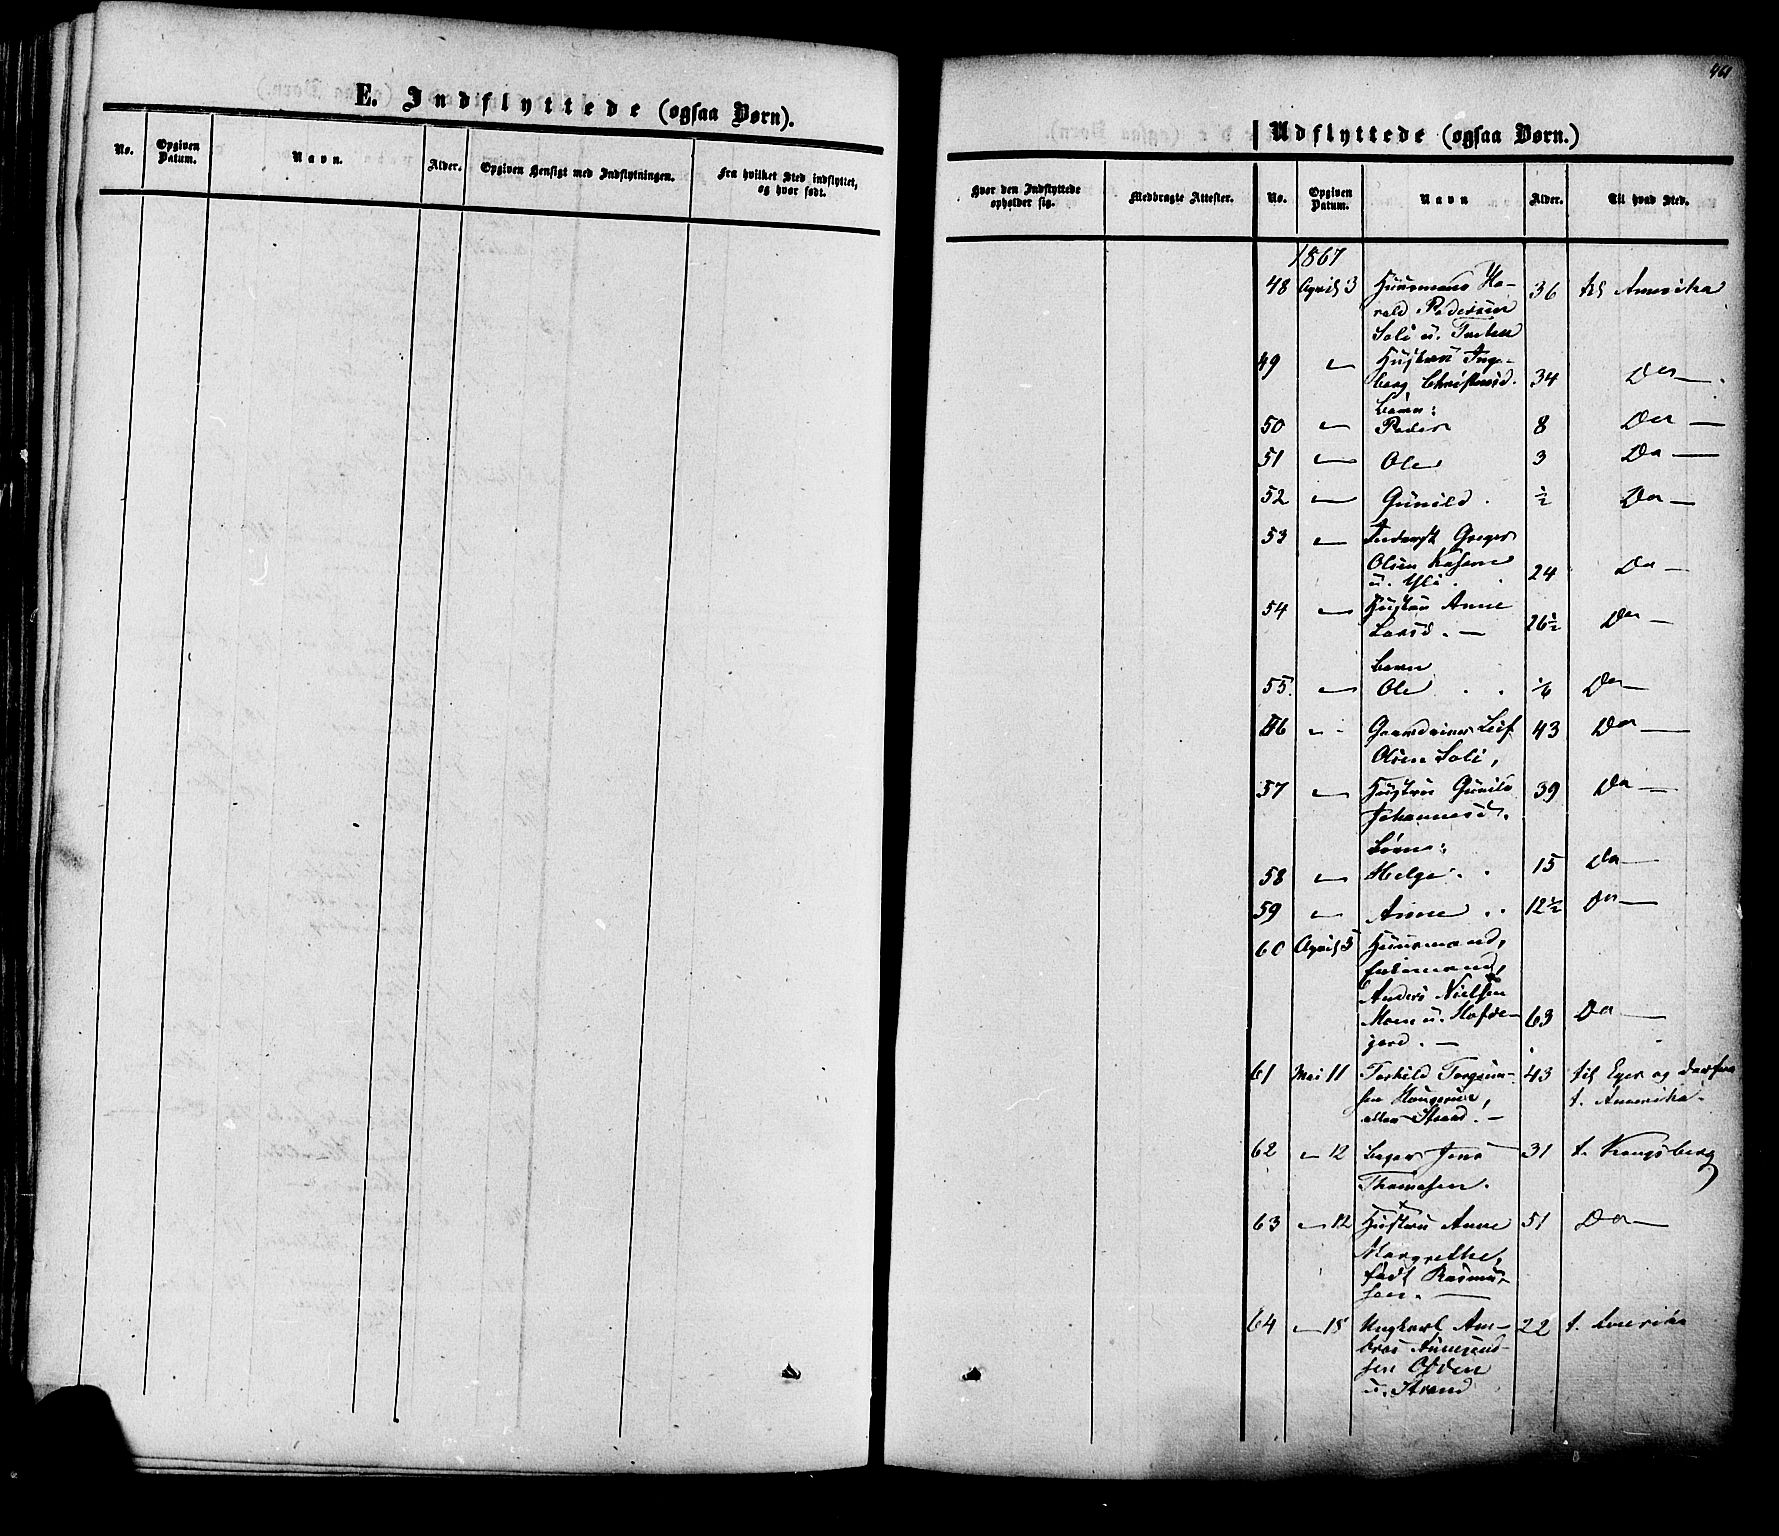 461
E. Indflyttede (ogsaa Børn).
No.
Opgiven Datum.
Navn.
Alder.
Opgiven Hensigt med Indflytningen.
Fra hvilket Sted indflyttet, og hvor født.
Udflyttede (ogsaa Børn.)
Hvor den Indflyttede opholder sig.
Medbragte Attester.
No.
Opgiven Datum.
Navn
Alder.
Til hvad Sted.
1867
48 April 3 Huusmand Ha- 36 til Amerika
rald Pedersen
Soli u.
49 " Hustru Inge-
borg Christensd. 34 Do
Børn:
50 " Peder 8 Do
51 " Ole 3 Do
52 " Gunild ½ Do
53 " Inderst Greger
Olsen
u. Yli. 24 Do
54 " Hustru Anne
Larsd. 26½ Do
Barn
55. " Ole ⅙ Do
56 " Gaardeier Leif 43 Do
Olsen Soli,
57 " Hustru Gunild 39 Do
Johannesd.
Børn:
58 " Helge 15 Do
59 " Anne 12½ Do
60 April 5 Huusmand,
Enkemand,
Anders Nielsen
Moen u. Hafde- 63 Do
gard.
61 Mai 11 Torkild Torgrim- 43 til Eger og derfra
sen Haugerud, t. Amerika.
eller Strand.
62 " 12 Bager Jens 31 t. Kongsberg
Thomesen.
63 " 12 Hustru Anne 51 Do
Margrethe,
født Rasmus-
sen.
64 " 15 Ungkarl Am- 22 t. Amerika
bros Amund-
sen
u. Strand